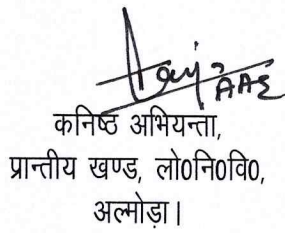 AAE
कनिष्ठ अभियन्ता,
प्रान्तीय खण्ड, लो0नि0वि0,
अल्मोड़ा।